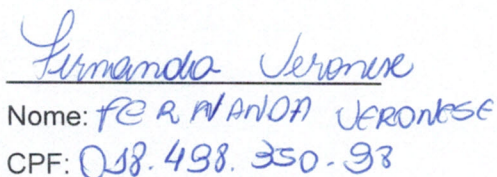 Fernanda Veronese
Nome: FERNANDA VERONESE
CPF: 018.498.350-98